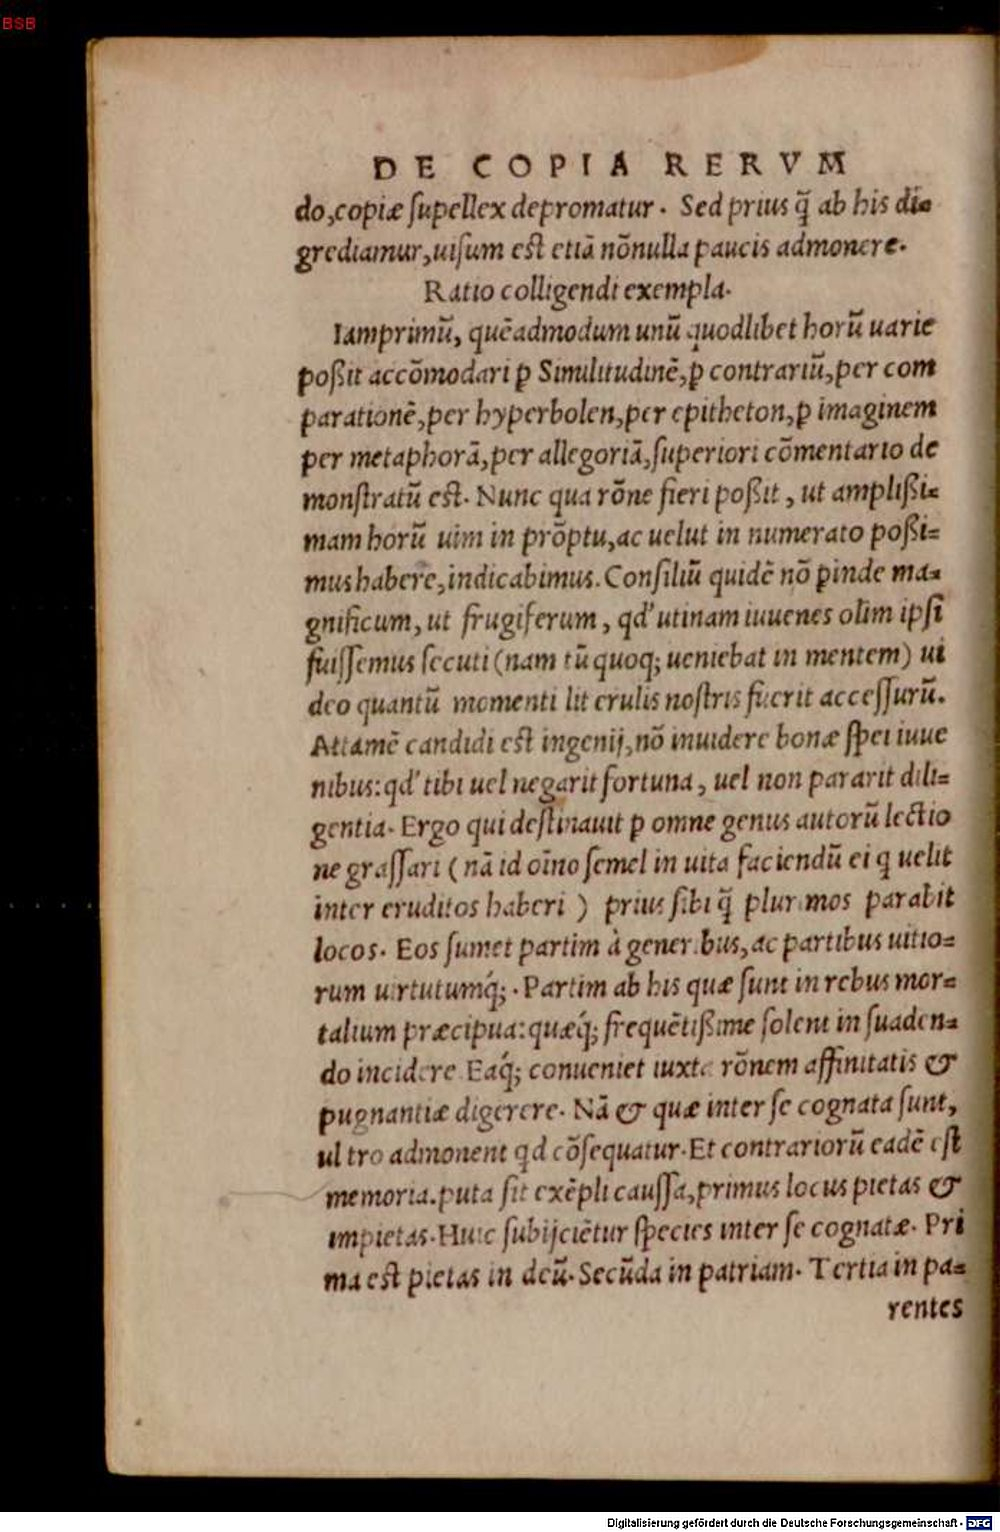 BSB
DE COPIA RERVM
do,copiæ ſupellex depromatur. Sed prius q̃ ab his di=
grediamur,uiſum eſt etiã nõnulla paucis admonere.
Ratio colligendi exempla.
Iamprimũ, quẽadmodum unũ quodlibet horũ uarie
poßit accõmodari ꝑ Similitudinẽ,ꝑ contrariũ,per com
parationẽ,per hyperbolen,per epitheton,ꝑ imaginem
per metaphorã,per allegoriã,ſuperiori cõmentario de
monſtratũ eſt. Nunc qua rõne fieri poßit, ut amplißi=
mam horũ uim in prõptu,ac uelut in numerato poßi=
mus habere,indicabimus. Conſiliũ quidẽ nõ ꝑinde ma=
gnificum, ut frugiferum, qd' utinam iuuenes olim ipſi
fuiſſemus ſecuti (nam tũ quoq; ueniebat in mentem) ui
deo quantũ momenti lit erulis noſtris fuerit acceſſurũ.
Attamẽ candidi eſt ingenij,nõ inuidere bonæ ſpei iuue
nibus:qd' tibi uel negarit fortuna, uel non pararit dili=
gentia. Ergo qui deſtinauit ꝑ omne genus autorũ lectio
ne graſſari (nã id oĩno ſemel in uita faciendũ ei q uelit
inter eruditos haberi) prius ſibi q̃ plurimos parabit
locos. Eos ſumet partim à generibus,ac partibus uitio=
rum uirtutumq́;. Partim ab his quæ ſunt in rebus mor=
talium præcipua:quæq́; frequẽtißime ſolent in ſuaden=
do incidere Eaq́; conueniet iuxta rõnem affinitatis &
pugnantiæ digerere. Nã & quæ inter ſe cognata ſunt,
ul tro admonent qd cõſequatur. Et contrariorũ eadẽ eſt
memoria.puta ſit exẽpli cauſſa,primus locus pietas &
impietas. Huic ſubijciẽtur ſpecies inter ſe cognatæ. Pri
ma eſt pietas in deũ. Secũda in patriam. Tertia in pa=
rentes
Digitalisierung gefördert durch die Deutsche Forschungsgemeinschaft - DFG